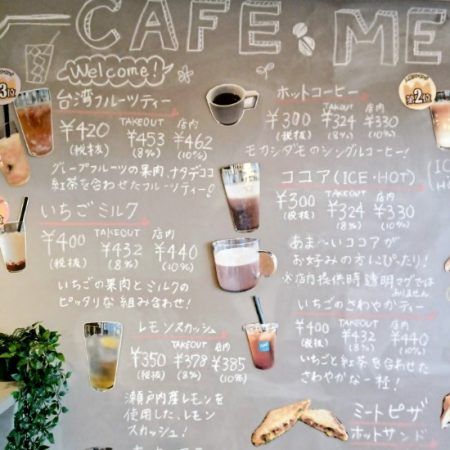 CAFE ME
Welcome!
台湾フルーツティー
TAKEOUT 店内
¥420 ¥453 ¥462
(税抜) (8%) (10%)
グレープフルーツの果肉、ナタデココ
紅茶を合わせたフルーツティー!
いちごミルク
TAKEOUT 店内
¥400 ¥432 ¥440
(税抜) (8%) (10%)
いちごの果肉とミルクの
ピッタリな組み合わせ!
レモンスカッシュ
TAKEOUT 店内
¥350 ¥378 ¥385
(税抜) (8%) (10%)
瀬戸内産レモンを
使用した、レモン
スカッシュ!
ホットコーヒー
TAKEOUT 店内
¥300 ¥324 ¥330
(税抜) (8%) (10%)
モカシダモのシングルコーヒー!
ココア(ICE・HOT)
TAKEOUT 店内
¥300 ¥324 ¥330
(税抜) (8%) (10%)
あま〜いココアが
お好みの方にぴったり!
※店内提供時透明マグでは
ありません
いちごのさわやかティー
TAKEOUT 店内
¥400 ¥432 ¥440
(税抜) (8%) (10%)
いちごと紅茶を合わせた
さわやかな一杯!
ミートピザ
ホットサンド
第2位
3位
(IC
(H